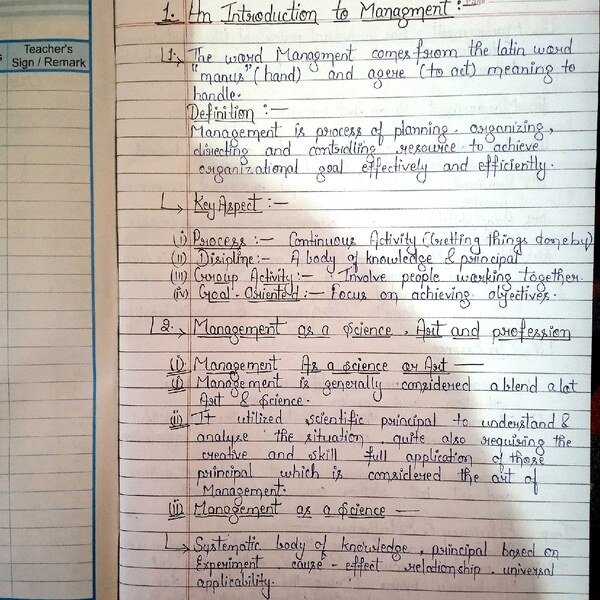 s
Teacher's
Sign / Remark
1. An Introduction to Managment :-
1. The word Managment comes from the latin word
"manus" (hand) and agere (to act) meaning to
handle.
Definition :-
Management is process of planning. organizing,
directing and controlling resource to achieve
organizational goal effectively and efficiently.
Key Aspect :-
(i) Process :- Continuous Activity (Getting things done by)
(ii) Disipline :- A body of knowledge & principal
(iii) Group Activity :- Involve people working together.
(iv) Goal - Oriented :- Focus on achieving objectives.
2. Management as a Science, Art and profession
(i) Management As a science or Art -
(i) Management is generally considered a blend a lot
Art & Science.
(ii) It utilized scientific principal to understand &
analyse the situation quite also requiring the
creative and skill full application of those
principal which is considered the art of
Management.
(ii) Management as a Science -
Systematic body of knowledge, principal based on
Experiment cause - effect relationship. universal
applicability.